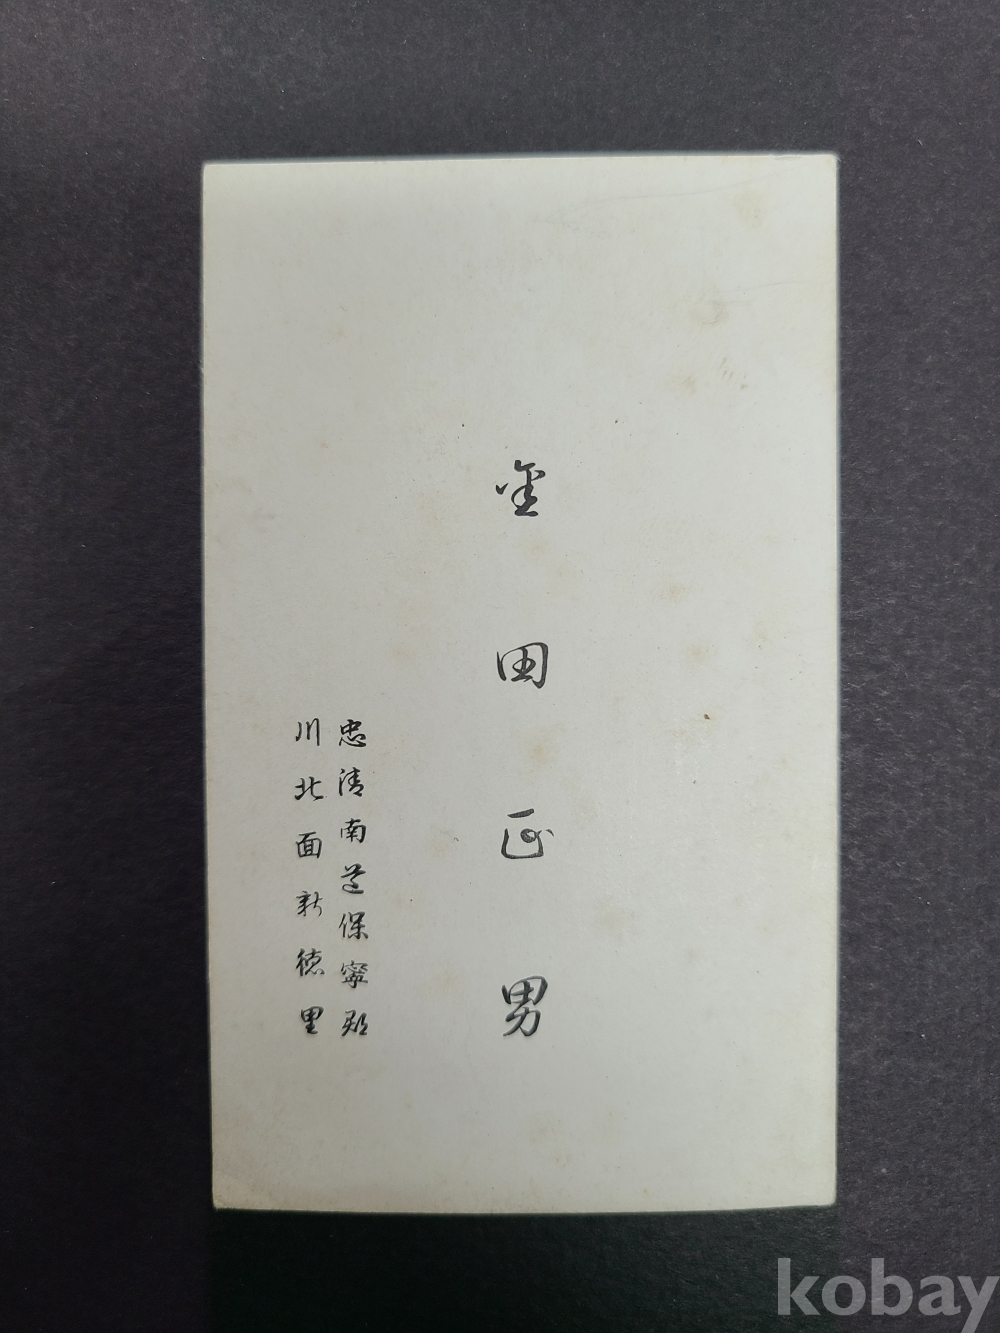 金田正男
忠清南道保寧郡
川北面新德里
kobay